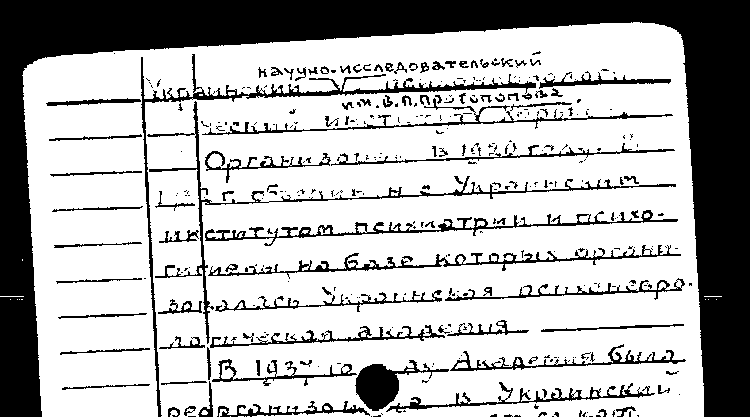 научно-исследовательский
Украинский психоневрологи-
им. В. П. Протопопова
ческий институт, Харьков.
Организован в 1920 году. В
г. объединён с Украинским
институтом психиатрии и психо-
гигиены, на базе которых органи-
зовалась Украинская психоневро-
логическая академия
В 1937 году Академия была
реорганизована в Украинский